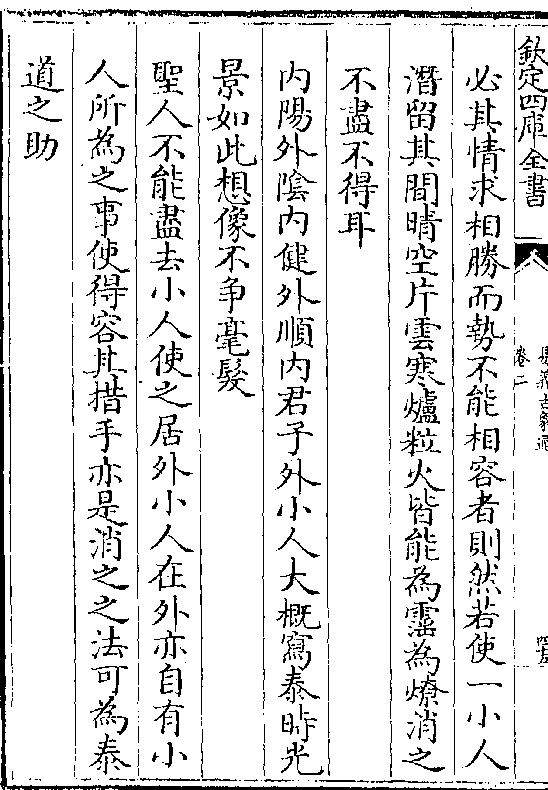 欽定四庫全書
卷二
必其情求相勝而勢不能相容者則然若使一小人
潛留其間晴空片雲寒爐粒火皆能為霪為燎消之
不盡不得耳
内陽外陰内健外順内君子外小人大概寫泰時光
景如此想像不争毫髮
聖人不能盡去小人使之居外小人在外亦自有小
人所為之事使得容其措手亦是消之之法可為泰
道之助